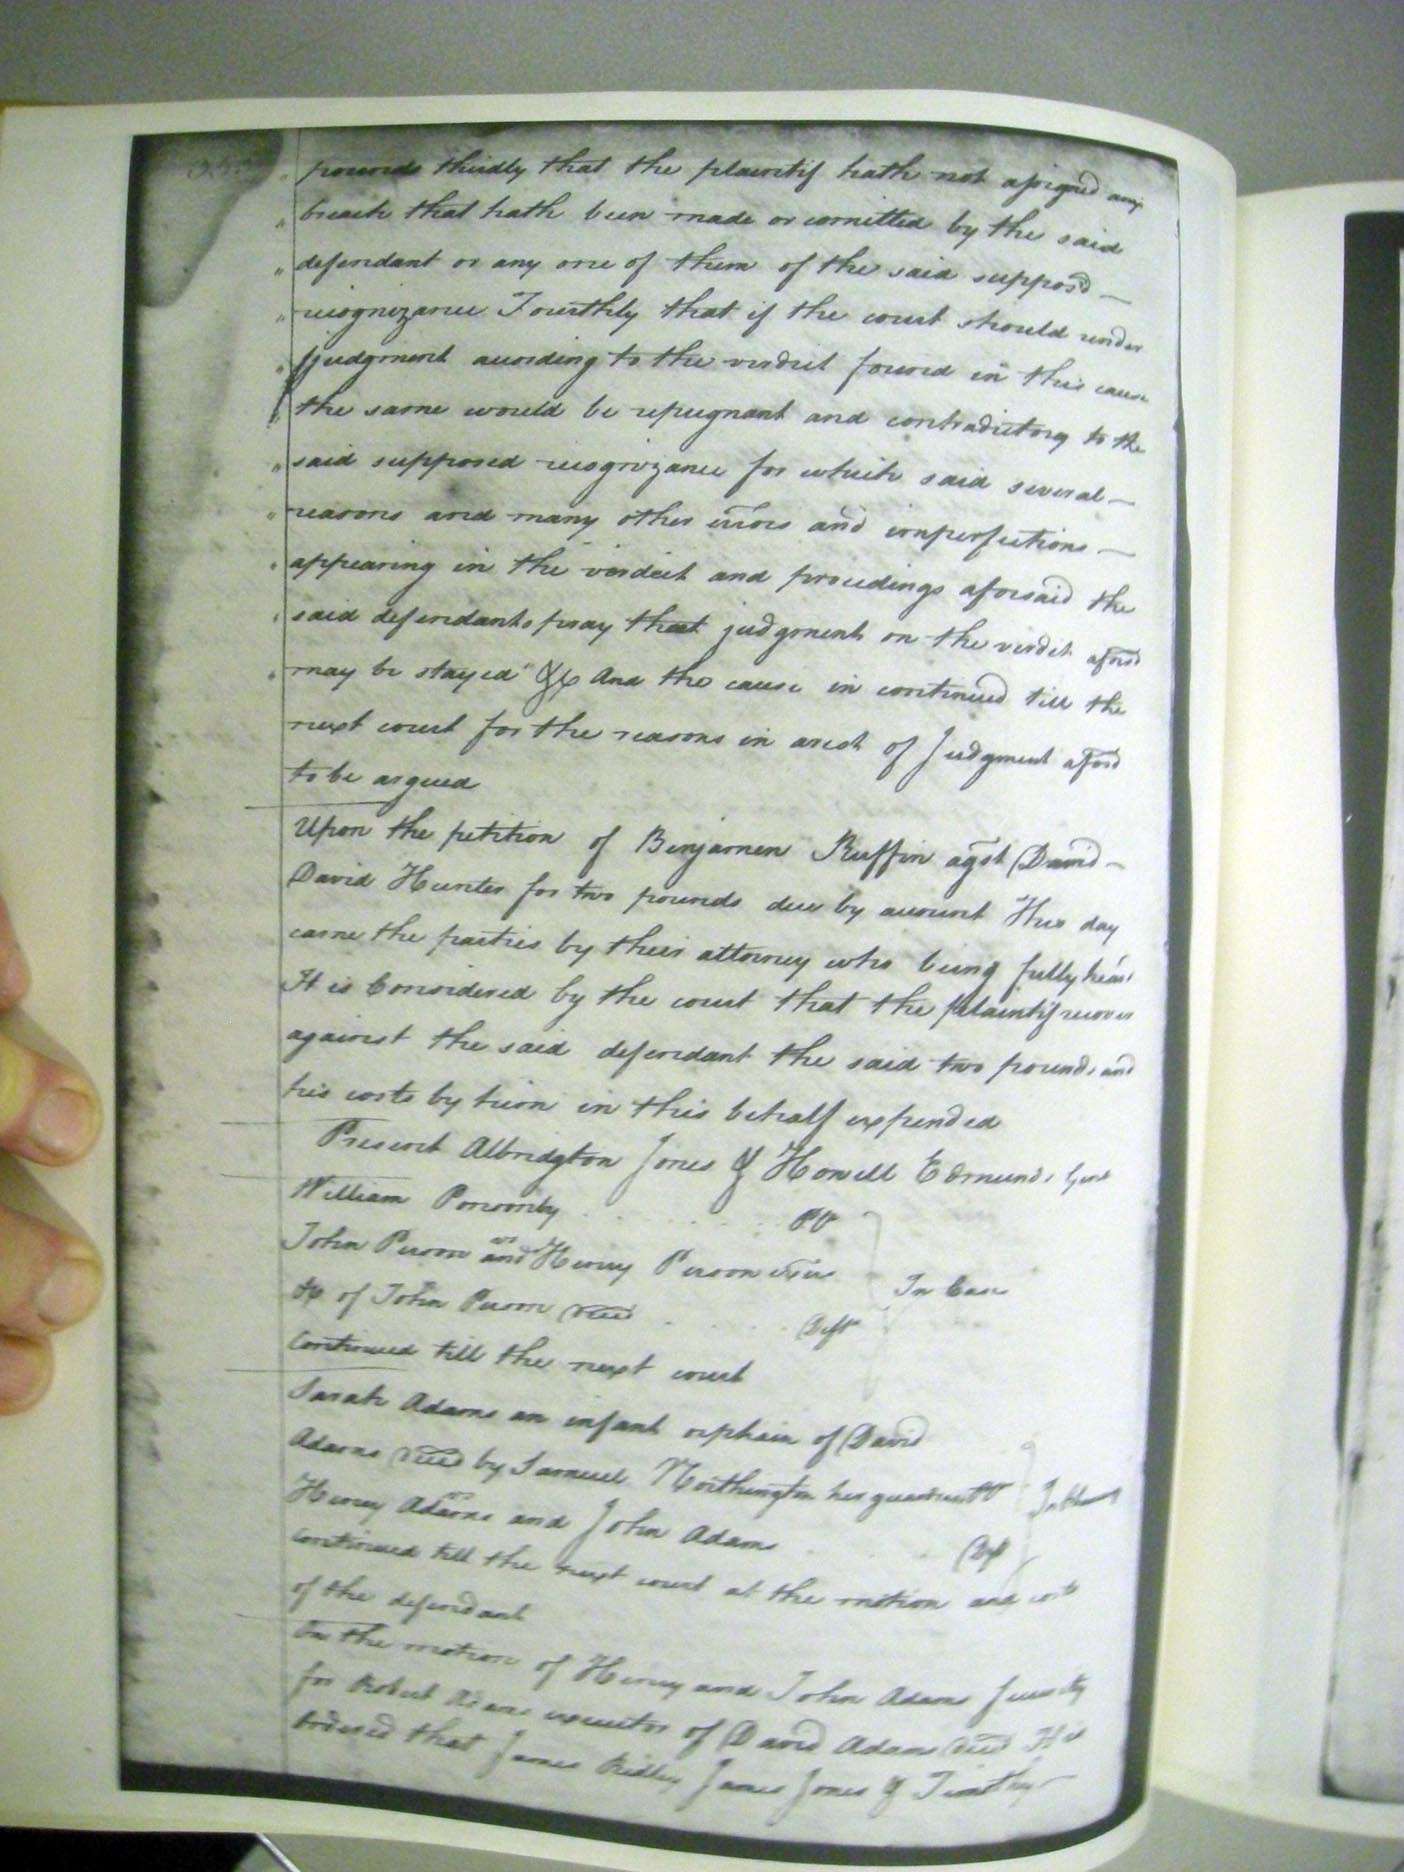 pounds thirdly that the plaintif hath not assigned any
breach that hath been made or comitted by the said
defendant or any one of them of the said supposd
recognizance Fourthly that if the court should render
judgment according to the verdict found in this cause
the same would be repugnant and contradictory to the
said supposed recognizance for which said several
reasons and many other errors and imperfections
appearing in the verdict and proceedings aforsaid the
said defendants pray that judgment on the verdict aforsd
may be stayed" & And the cause in continued till the
next court for the reasons in arest of Judgment aforsd
to be argued
Upon the petition of Benjamen Ruffin agst David
David Hunter for two pounds due by account This day
came the parties by their attorney who being fully heard
It is Considered by the court that the plaintif recover
against the said defendant the said two pounds and
his costs by him in this behalf expended
Present Albridgton Jones & Howell Edmunds Gent
William Ponsonby . . . . . . Pl
John Person and Henry Person exrs
of John Person decd . . . . Deft
In Case
continued till the next court
Sarah Adams an infant orphan of David
Adams decd by Samuel Northington her guardian Pl
Henry Adams and John Adams . . . . Def
continued till the next court at the motion and costs
of the defendant
On the motion of Henry and John Adams security
for Robert Adams executor of David Adams decd It is
Ordered that James Ridley James Jones & Timothy